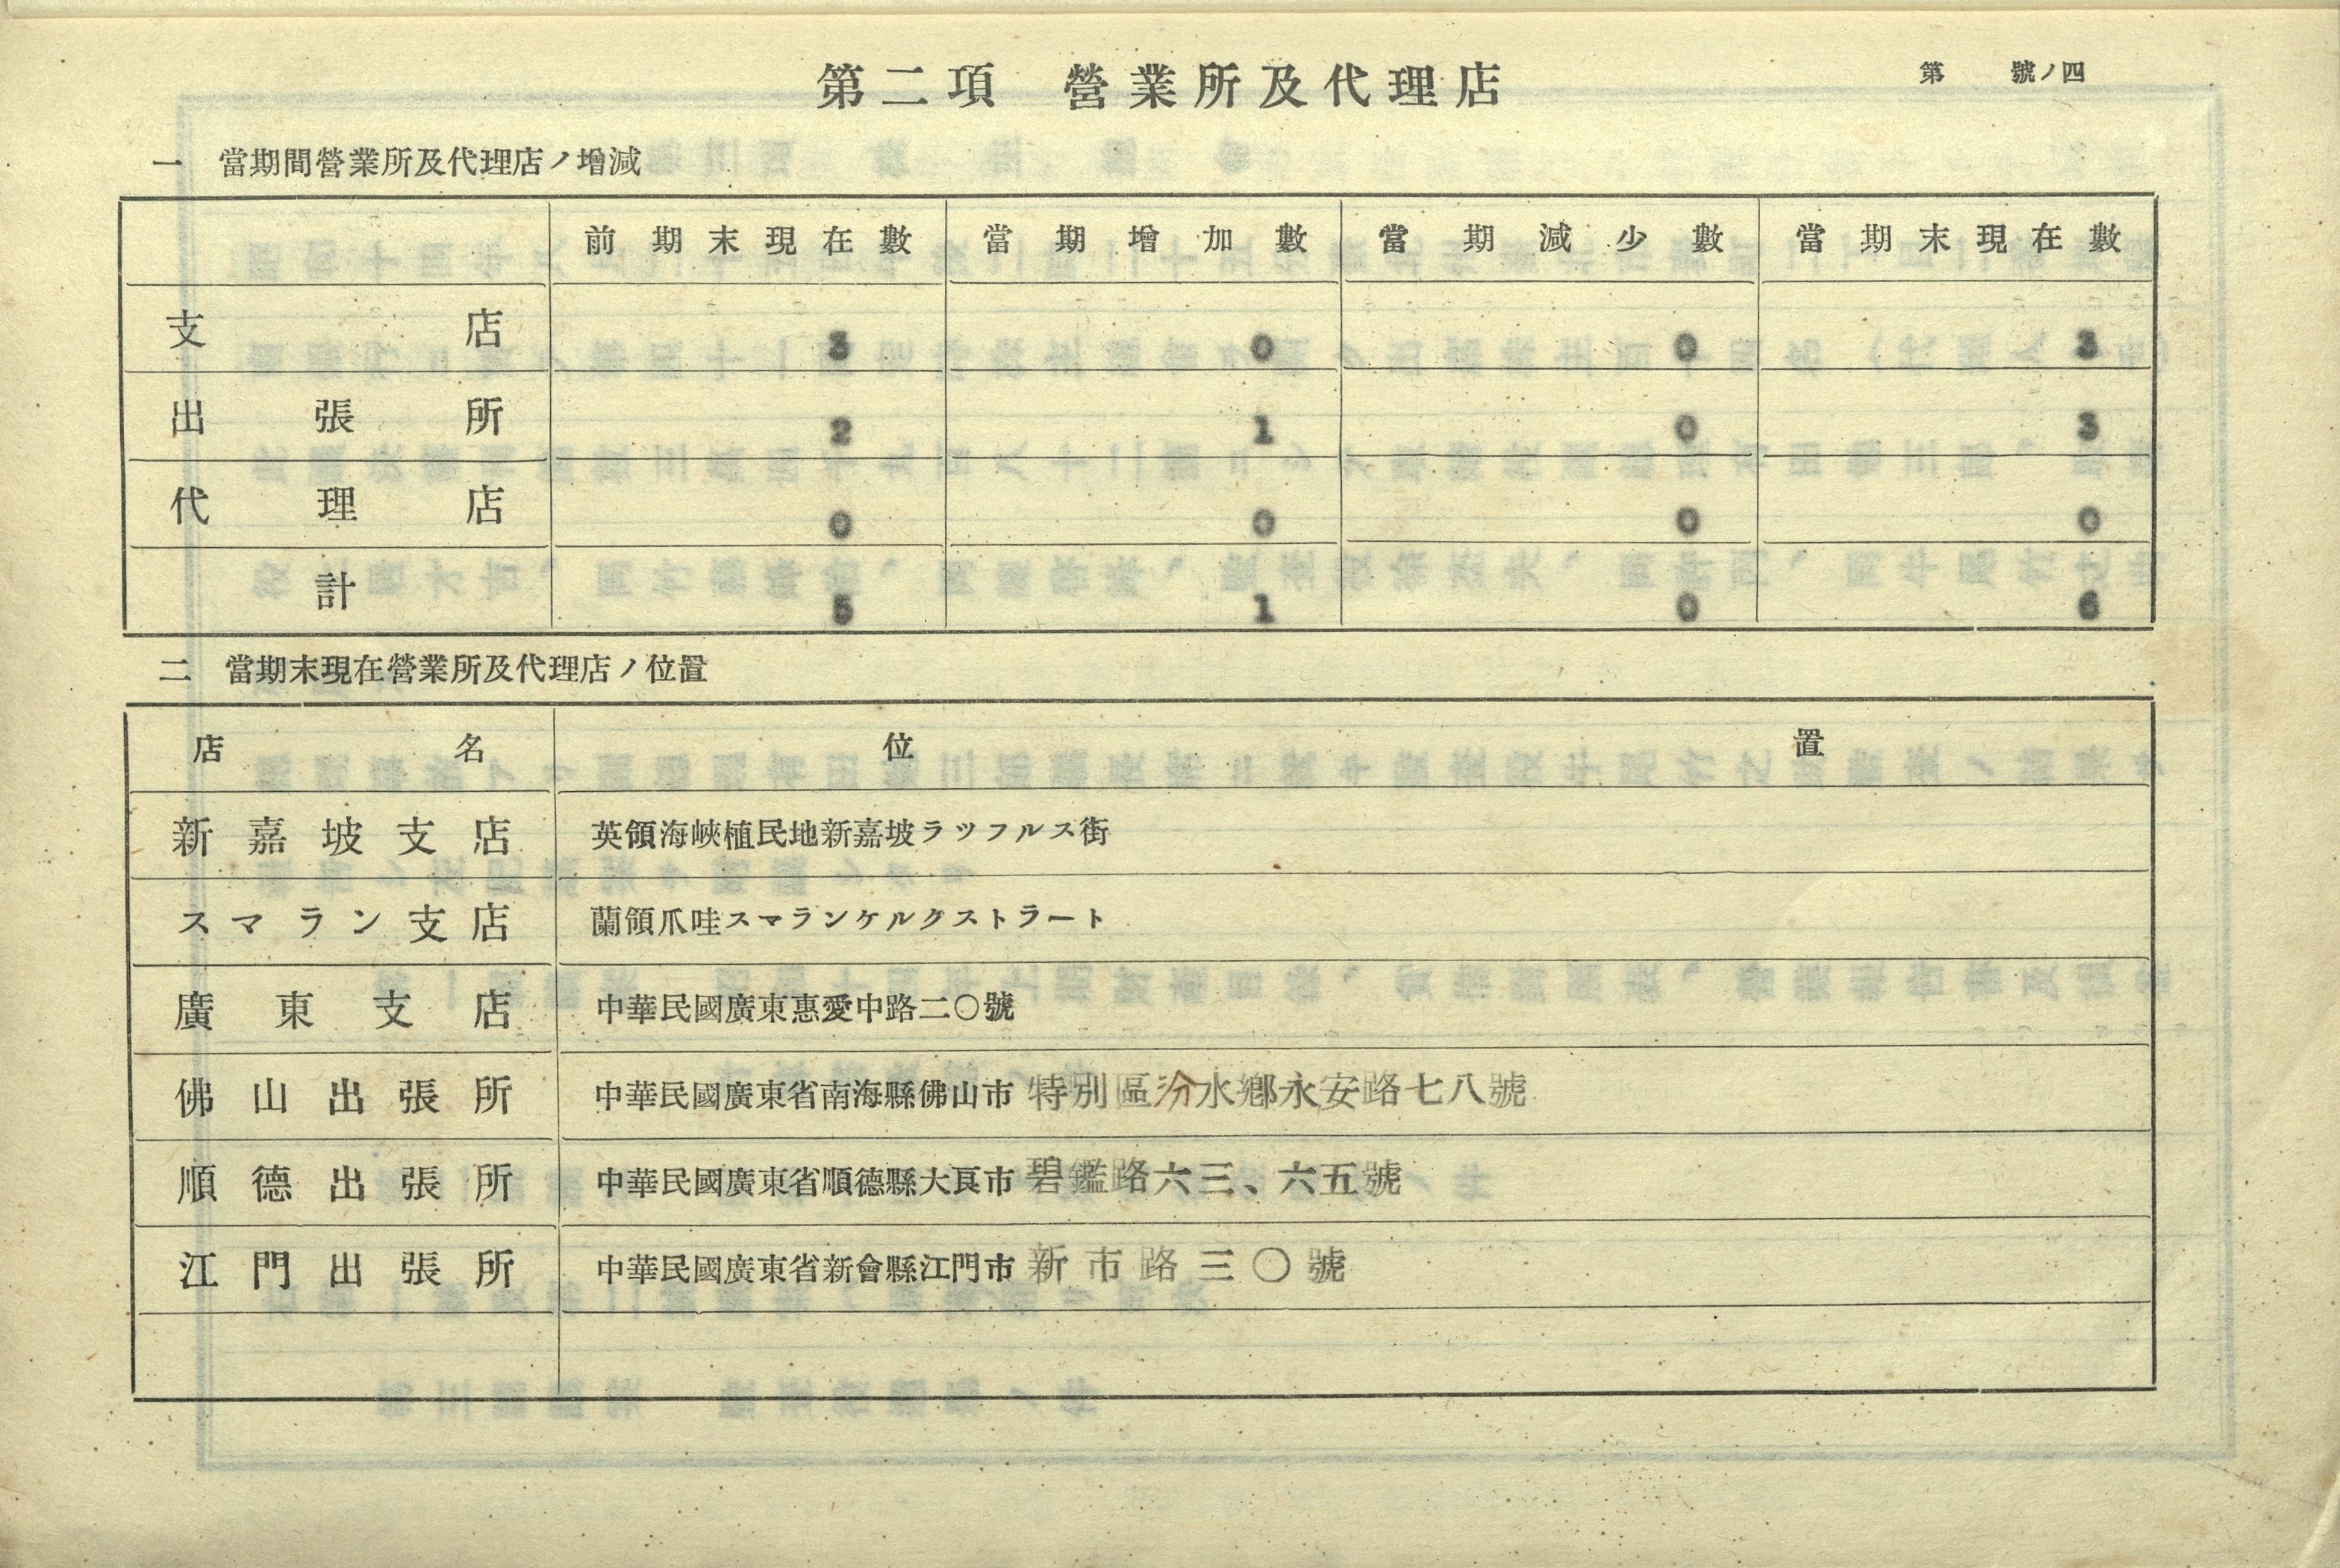 第 號ノ四
第二項 營業所及代理店
一 當期間營業所及代理店ノ增減
前期末現在數 當期增加數 當期減少數 當期末現在數
支店 3 0 0 3
出張所 2 1 0 3
代理店 0 0 0 0
計 5 1 0 6
二 當期末現在營業所及代理店ノ位置
店名 位置
新嘉坡支店 英領海峽植民地新嘉坡ラッフルス街
スマラン支店 蘭領爪哇スマランケルクストラート
廣東支店 中華民國廣東惠愛中路二〇號
佛山出張所 中華民國廣東省南海縣佛山市特別區汾水鄕永安路七八號
順德出張所 中華民國廣東省順德縣大良市碧鑑路六三、六五號
江門出張所 中華民國廣東省新會縣江門市新市路三〇號